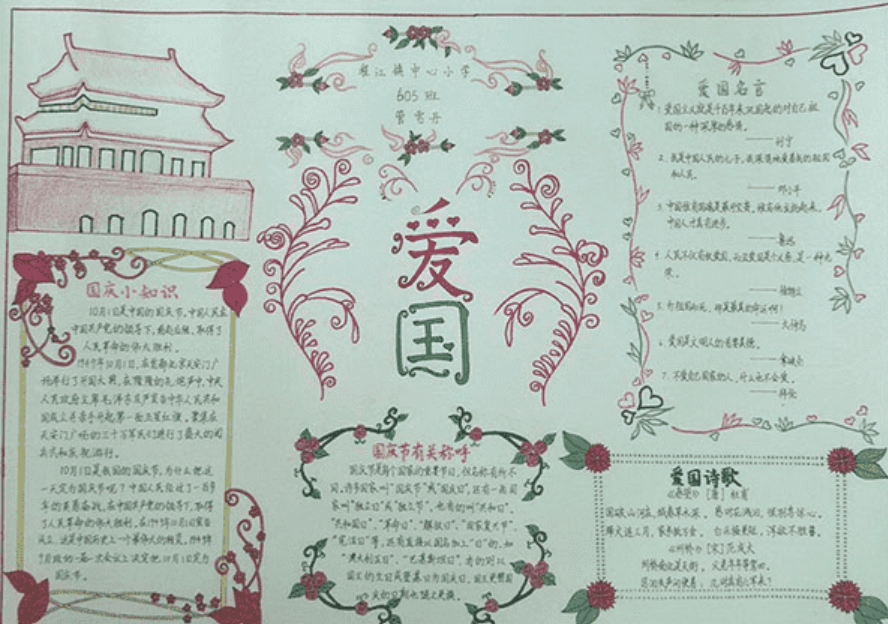 中心小学
605班
爱
国
国庆小知识
10月1日是中国的国庆节。中国人民在
中国共产党的领导下,前赴后继,取得了
人民革命的伟大胜利。
1949年10月1日,在首都北京天安门广
场举行了开国大典,在隆隆的礼炮声中,中央
人民政府主席毛泽东庄严宣告中华人民共和
国成立并亲手升起第一面五星红旗。聚集在
天安门广场的三十万军民们进行了盛大的阅
兵式和庆祝游行。
10月1日是我国的国庆节,为什么把这
一天定为国庆节呢?中国人民经过了一百多
年的英勇奋战,在中国共产党的领导下,取得
了人民革命的伟大胜利。在1949年10月1日宣告
成立,这是中国历史上一个最伟大的转变。1949年
9月政协一届一次会议上决定把10月1日定为
国庆节。
国庆节有关称呼
国庆节是每个国家的重要节日,但名称有所不
同。许多国家叫"国庆节"或"国庆日",还有一些国
家叫"独立日"或"独立节",也有的叫"共和日"、
"共和国日"、"革命日"、"解放日"、"国家复兴节"、
"宪法日"等,还有直接以国名加上"日"的,如
"澳大利亚日"、"巴基斯坦日",有的则以
国王的生日或登基日为国庆日,国王更替国
庆的日期也随之更换。
爱国名言
1.爱国主义就是千百年来巩固起来的对自己祖
国的一种深厚的感情。
——列宁
2.我是中国人民的儿子,我深情地爱着我的祖国
和人民。
——邓小平
3.
中国人才真有进步。
——鲁迅
4.人民不仅有权爱国,而且爱国是个义务,是一种光
荣。
——徐特立
5.为祖国而死,那是最美的命运啊!
——大仲马
6.爱国是文明人的首要美德。
——拿破仑
7.不爱自己国家的人,什么也不会爱。
——拜伦
爱国诗歌
《春望》[唐]杜甫
国破山河在,城春草木深。感时花溅泪,恨别鸟惊心。
烽火连三月,家书抵万金。白头搔更短,浑欲不胜簪。
《州桥》[宋]范成大
州桥南北是天街,父老年年等驾回。
忍泪失声询使者,几时真有六军来?